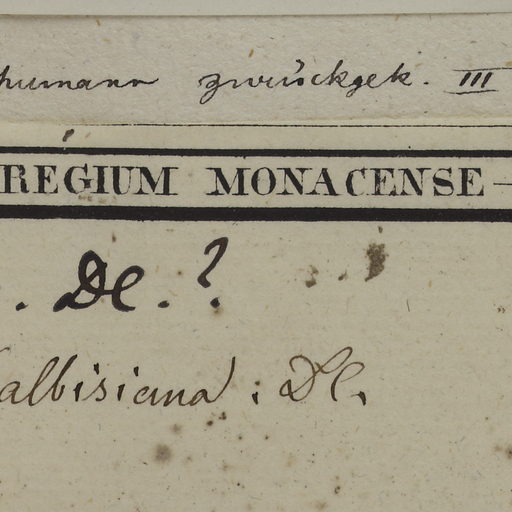 humann zurückgek. III
REGIUM MONACENSE —
. De. ?
albisiana . De.